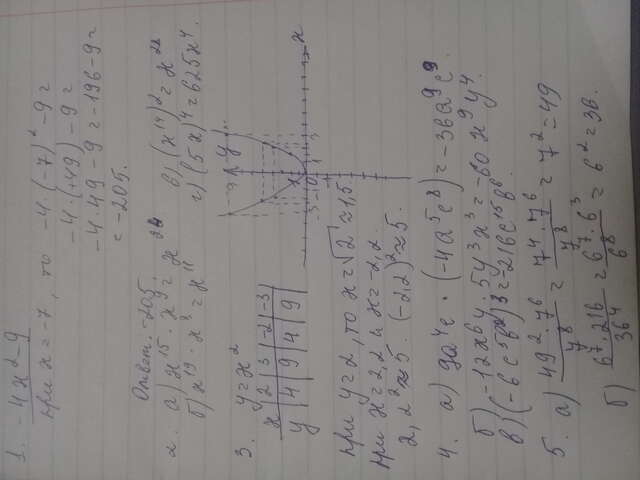 1. -4x²-9
при x=-7, то -4·(-7)²-9=
-4·(+49)-9=
-4·49-9=-196-9=
=-205.
Ответ: -205.
2. а) x¹⁵·x⁹=x²⁴ в) (x¹⁴)²=x²⁸
б) x¹⁹·x⁸=x¹¹ г) (5x)⁴=625x⁴.
3. y=x²
x 2 3 -2 -3
y 4 9 4 9
y
9
x
0
при y=2, то x=√2≈1,5.
при x=2,2 и x=-2,2.
2,2²≈5. (-2,2)²≈5.
4. а) 9a⁴c·(-4a⁵c⁸)=-36a⁹c⁹.
б) -12x⁶y·5y³x³=-60x⁹y⁴.
в) (-6c⁵b²)³=-216c¹⁵b⁶
5. а) 49²·7⁶/7⁸ = 7⁴·7⁶/7⁸ = 7²=49
б) 6⁷·216/36⁴ = 6⁷·6³/6⁸ = 6²=36.